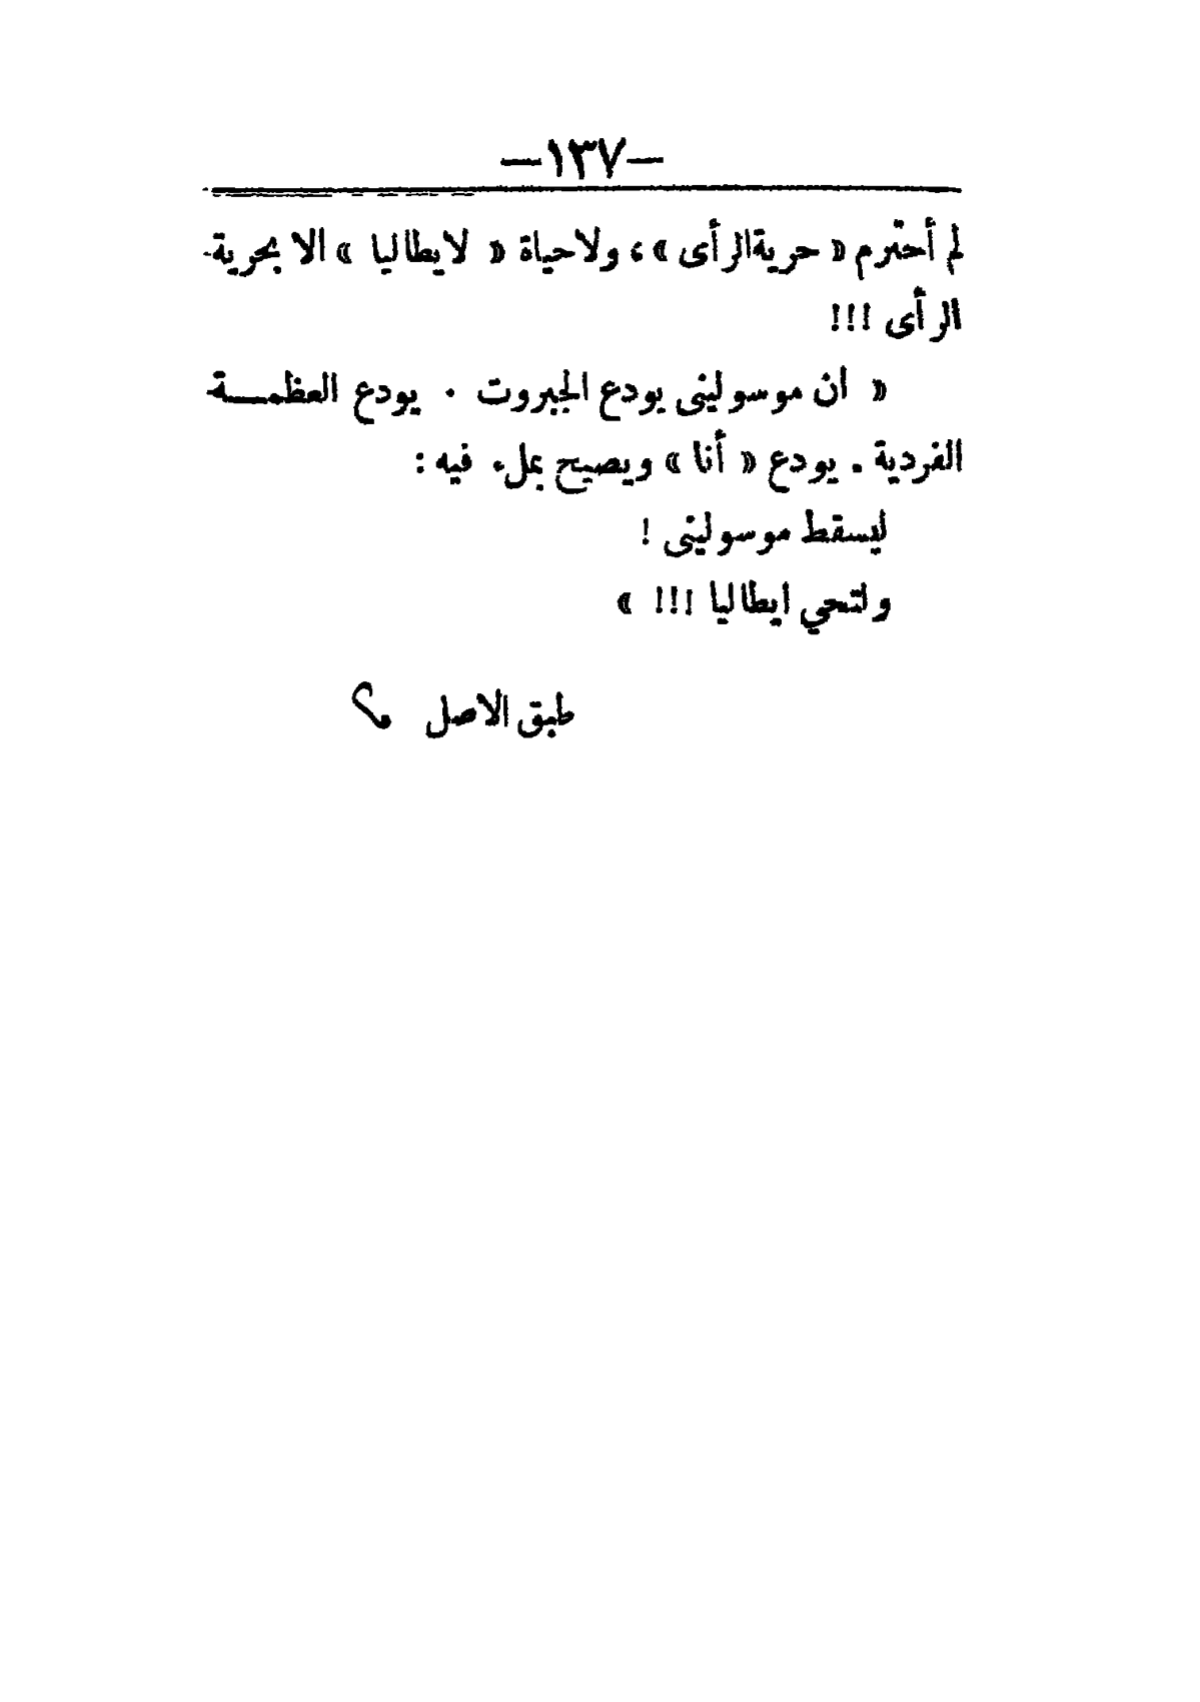 —١٣٧—
لم أحترم « حرية الرأى » ، ولا حياة « لايطاليا » الا بحرية
الرأى !!!
« ان موسولينى يودع الجبروت . يودع العظمـــة
الفردية . يودع « أنا » ويصيح بملء فيه :
ليسقط موسولينى !
ولتحي ايطاليا !!! »
طبق الاصل